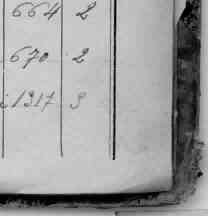 664 2
670 2
1317 3